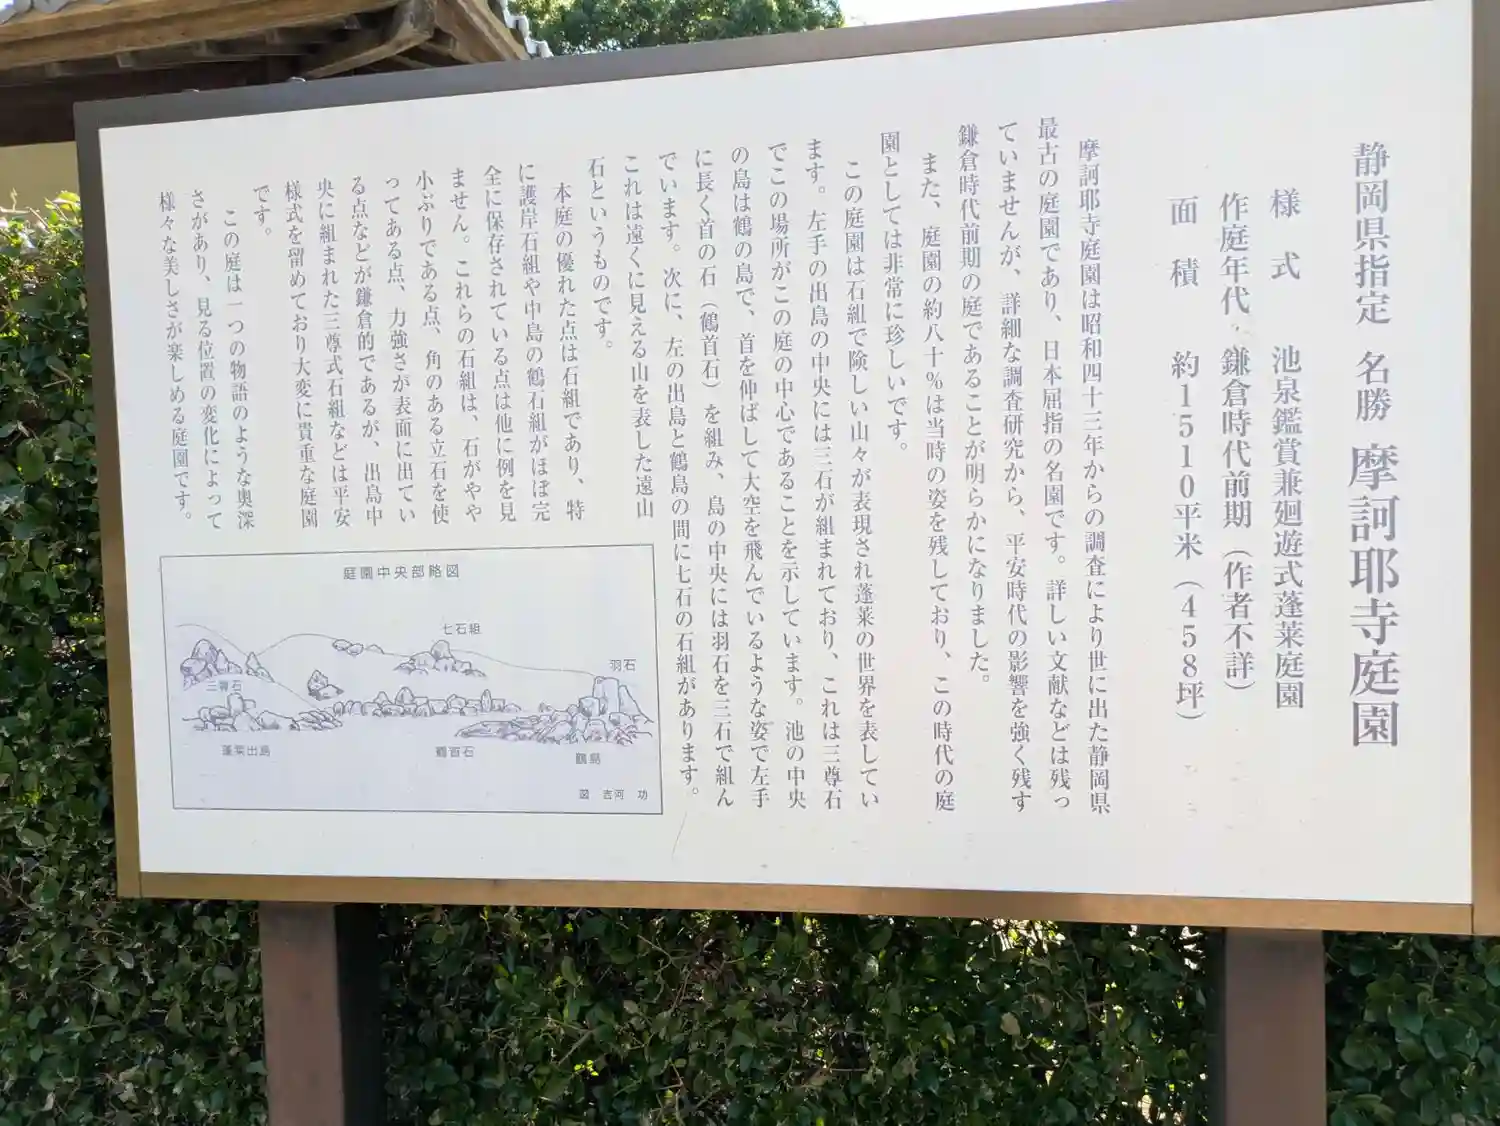 静岡県指定 名勝 摩訶耶寺庭園
様式 池泉鑑賞兼廻遊式蓬莱庭園
作庭年代 鎌倉時代前期（作者不詳）
面積 約1510平米（458坪）
摩訶耶寺庭園は昭和四十三年からの調査により世に出た静岡県
最古の庭園であり、日本屈指の名園です。詳しい文献などは残っ
ていませんが、詳細な調査研究から、平安時代の影響を強く残す
鎌倉時代前期の庭であることが明らかになりました。
また、庭園の約八十％は当時の姿を残しており、この時代の庭
園としては非常に珍しいです。
この庭園は石組で険しい山々が表現され蓬莱の世界を表してい
ます。左手の出島の中央には三石が組まれており、これは三尊石
でこの場所がこの庭の中心であることを示しています。池の中央
の島は鶴の島で、首を伸ばして大空を飛んでいるような姿で左手
に長く首の石（鶴首石）を組み、島の中央には羽石を三石で組ん
でいます。次に、左の出島と鶴島の間に七石の石組があります。
これは遠くに見える山を表した遠山
石というものです。
本庭の優れた点は石組であり、特
に護岸石組や中島の鶴石組がほぼ完
全に保存されている点は他に例を見
ません。これらの石組は、石がやや
小ぶりである点、角のある立石を使
ってある点、力強さが表面に出てい
る点などが鎌倉的であるが、出島中
央に組まれた三尊式石組などは平安
様式を留めており大変に貴重な庭園
です。
この庭は一つの物語のような奥深
さがあり、見る位置の変化によって
様々な美しさが楽しめる庭園です。
庭園中央部略図
七石組
羽石
三尊石
蓬莱出島
鶴首石
鶴島
図 吉河 功